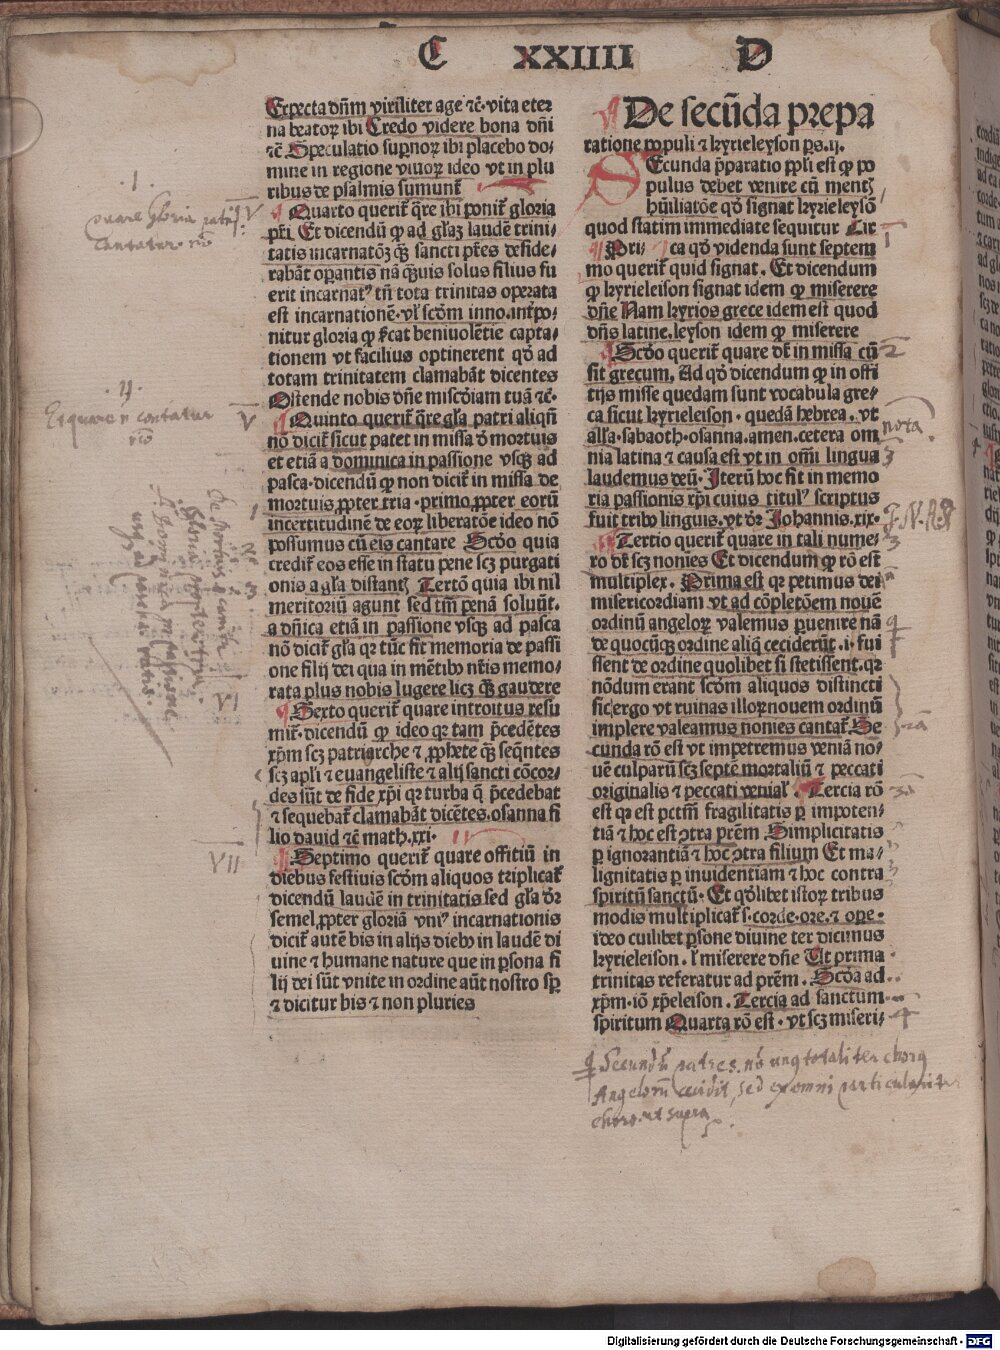 C XXIIII D
Expecta dñm viriliter age ⁊c̄. vita eter
na beatoꝝ ibi Credo videre bona dñi
⁊c̄ Speculatio supnoꝝ ibi placebo do⸗
mine in regione viuoꝝ ideo vt in plu
ribus de psalmis sumunt̄
¶ Quarto querit̄ q̄re ibi ponit̄ gloria
pr̄i Et dicendū ꝙ ad glāȝ laudē trini⸗
tatis incarnatōȝ q̄ȝ sancti pr̄es deside⸗
rabāt oꝑantis nā q̄ȝuis solus filius fu
erit incarnatꝰ tn̄ tota trinitas operata
est incarnationē. vl̓ scd̄m inno. int̓po⸗
nitur gloria ꝙ
beniuolētie capta⸗
tionem vt facilius optinerent qd̓ ad
totam trinitatem clamabāt dicentes
Ostende nobis dñe miscd̓iam tuā ⁊c̄.
¶ Quinto querit̄ q̄re glā patri aliqn̄
nō dicit̄ sicut patet in missa d̓ mortuis
et etiā a dominica in passione vsqȝ ad
pasca. dicendū ꝙ non dicit̄ in missa de
mortuis ꝓpter tria. primo ꝓpter eorū
incertitudinē de eoꝝ liberatōe ideo nō
possumus cū eis cantare Scd̓o quia
credit̄ eos esse in statu pene scȝ purgati
onis a glā distantȝ Tertō quia ibi nil
meritoriū agunt sed tm̄ penā soluūt.
a dñica etiā in passione vsqȝ ad pasca
nō dicit̄ glā qꝛ tūc fit memoria de passi
one filij dei qua in mētibꝰ nr̄is memo⸗
rata plus nobis lugere licȝ q̄ȝ gaudere
¶ Sexto querit̄ quare introitus resu
mit̄. dicendū ꝙ ideo qꝛ tam p̄cedētes
xp̄m scȝ patriarche ⁊ ꝓphete q̄ȝ seq̄ntes
scȝ apl̓i ⁊ euangeliste ⁊ alij sancti cōcor⸗
des sūt de fide xp̄i qꝛ turba q̄ p̄cedebat
⁊ sequebat̄ clamabāt dicētes. osanna fi
lio dauid ⁊c̄ math. xxi.
¶ Septimo querit̄ quare offitiū in
diebus festiuis scd̄m aliquos triplicat̄
dicendū laudē in trinitatis sed glā dr̄
semel ꝓpter gloriā vniꝰ incarnationis
dicit̄ autē bis in alijs diebꝰ in laudē di
uine ⁊ humane nature que in ꝑsona fi
lij dei sūt vnite in ordine aūt nostro sꝑ
⁊ dicitur bis ⁊ non pluries
¶ De secūda prepa
ratione populi ⁊ kyrieleyson ps. ij.
Secunda p̄paratio ppl̓i est ꝙ po
pulus debet venire cū mentȝ
hūiliatōe qd̓ signat kyrieleysō
quod statim immediate sequitur Cir
¶ Pri⸗ ca qd̓ videnda sunt septem
mo querit̄ quid signat. Et dicendum
ꝙ kyrieleison signat idem ꝙ miserere
dñe Nam kyrios grece idem est quod
dñs latine. leyson idem ꝙ miserere
¶ Scd̓o querit̄ quare dr̄ in missa cū
sit grecum, Ad qd̓ dicendum ꝙ in offi
tijs misse quedam sunt vocabula gre⸗
ca sicut kyrieleison. quedā hebrea. vt
all̓a. sabaoth. osanna. amen. cetera om
nia latina ⁊ causa est vt in om̄i lingua
laudemus deū. Iterū hoc fit in memo
ria passionis xp̄i cuius titulꝰ scriptus
fuit tribꝰ linguis. vt dr̄ Johannis. xix.
¶ Tertio querit̄ quare in tali nume⸗
ro dr̄ scȝ nonies Et dicendum ꝙ rō est
multiplex. Prima est qꝛ petimus dei
misericordiam vt ad cōpletōem nouē
ordinū angeloꝝ valemus ꝑuenire nā
de quocūqȝ ordine aliq̄ ceciderūt. i. fui
ssent de ordine quolibet si stetissent. qꝛ
nōdum erant scd̄m aliquos distincti
sic ergo vt ruinas illoꝝ nouem ordinū
implere valeamus nonies cantat̄ Se
cunda rō est vt impetremus veniā no⸗
uē culparū scȝ septē mortaliū ⁊ peccati
originalis ⁊ peccati venial̓. Tercia rō
est qꝛ est pctm̄ fragilitatis ꝑ impoten⸗
tiā ⁊ hoc est ꝯtra prēm Simplicitatis
ꝑ ignorantiā ⁊ hoc ꝯtra filium Et ma⸗
lignitatis ꝑ inuidentiam ⁊ hoc contra
spiritū sanctū. Et qd̓libet istoꝝ tribus
modis multiplicat̄ s. corde. ore. ⁊ oꝑe.
ideo cuilibet ꝑsone diuine ter dicimus
kyrieleison. l̓ miserere dñe Ut prima
trinitas referatur ad prēm. Scd̓a ad
xp̄m. iō xp̄eleison. Tercia ad sanctum
spiritum Quarta rō est. vt scȝ miseri⸗
.1.
quare Gloria patri
cantatur
V
.ij.
Et quare n cantatur
V
VI
VII
1
2
nota
3
J. N. R. J
4
Secundū patres. nō unq totaliter chorꝰ
Angelorū cecidit, sed ex omni particulariter
choro. ut supra.
Digitalisierung gefördert durch die Deutsche Forschungsgemeinschaft - DFG